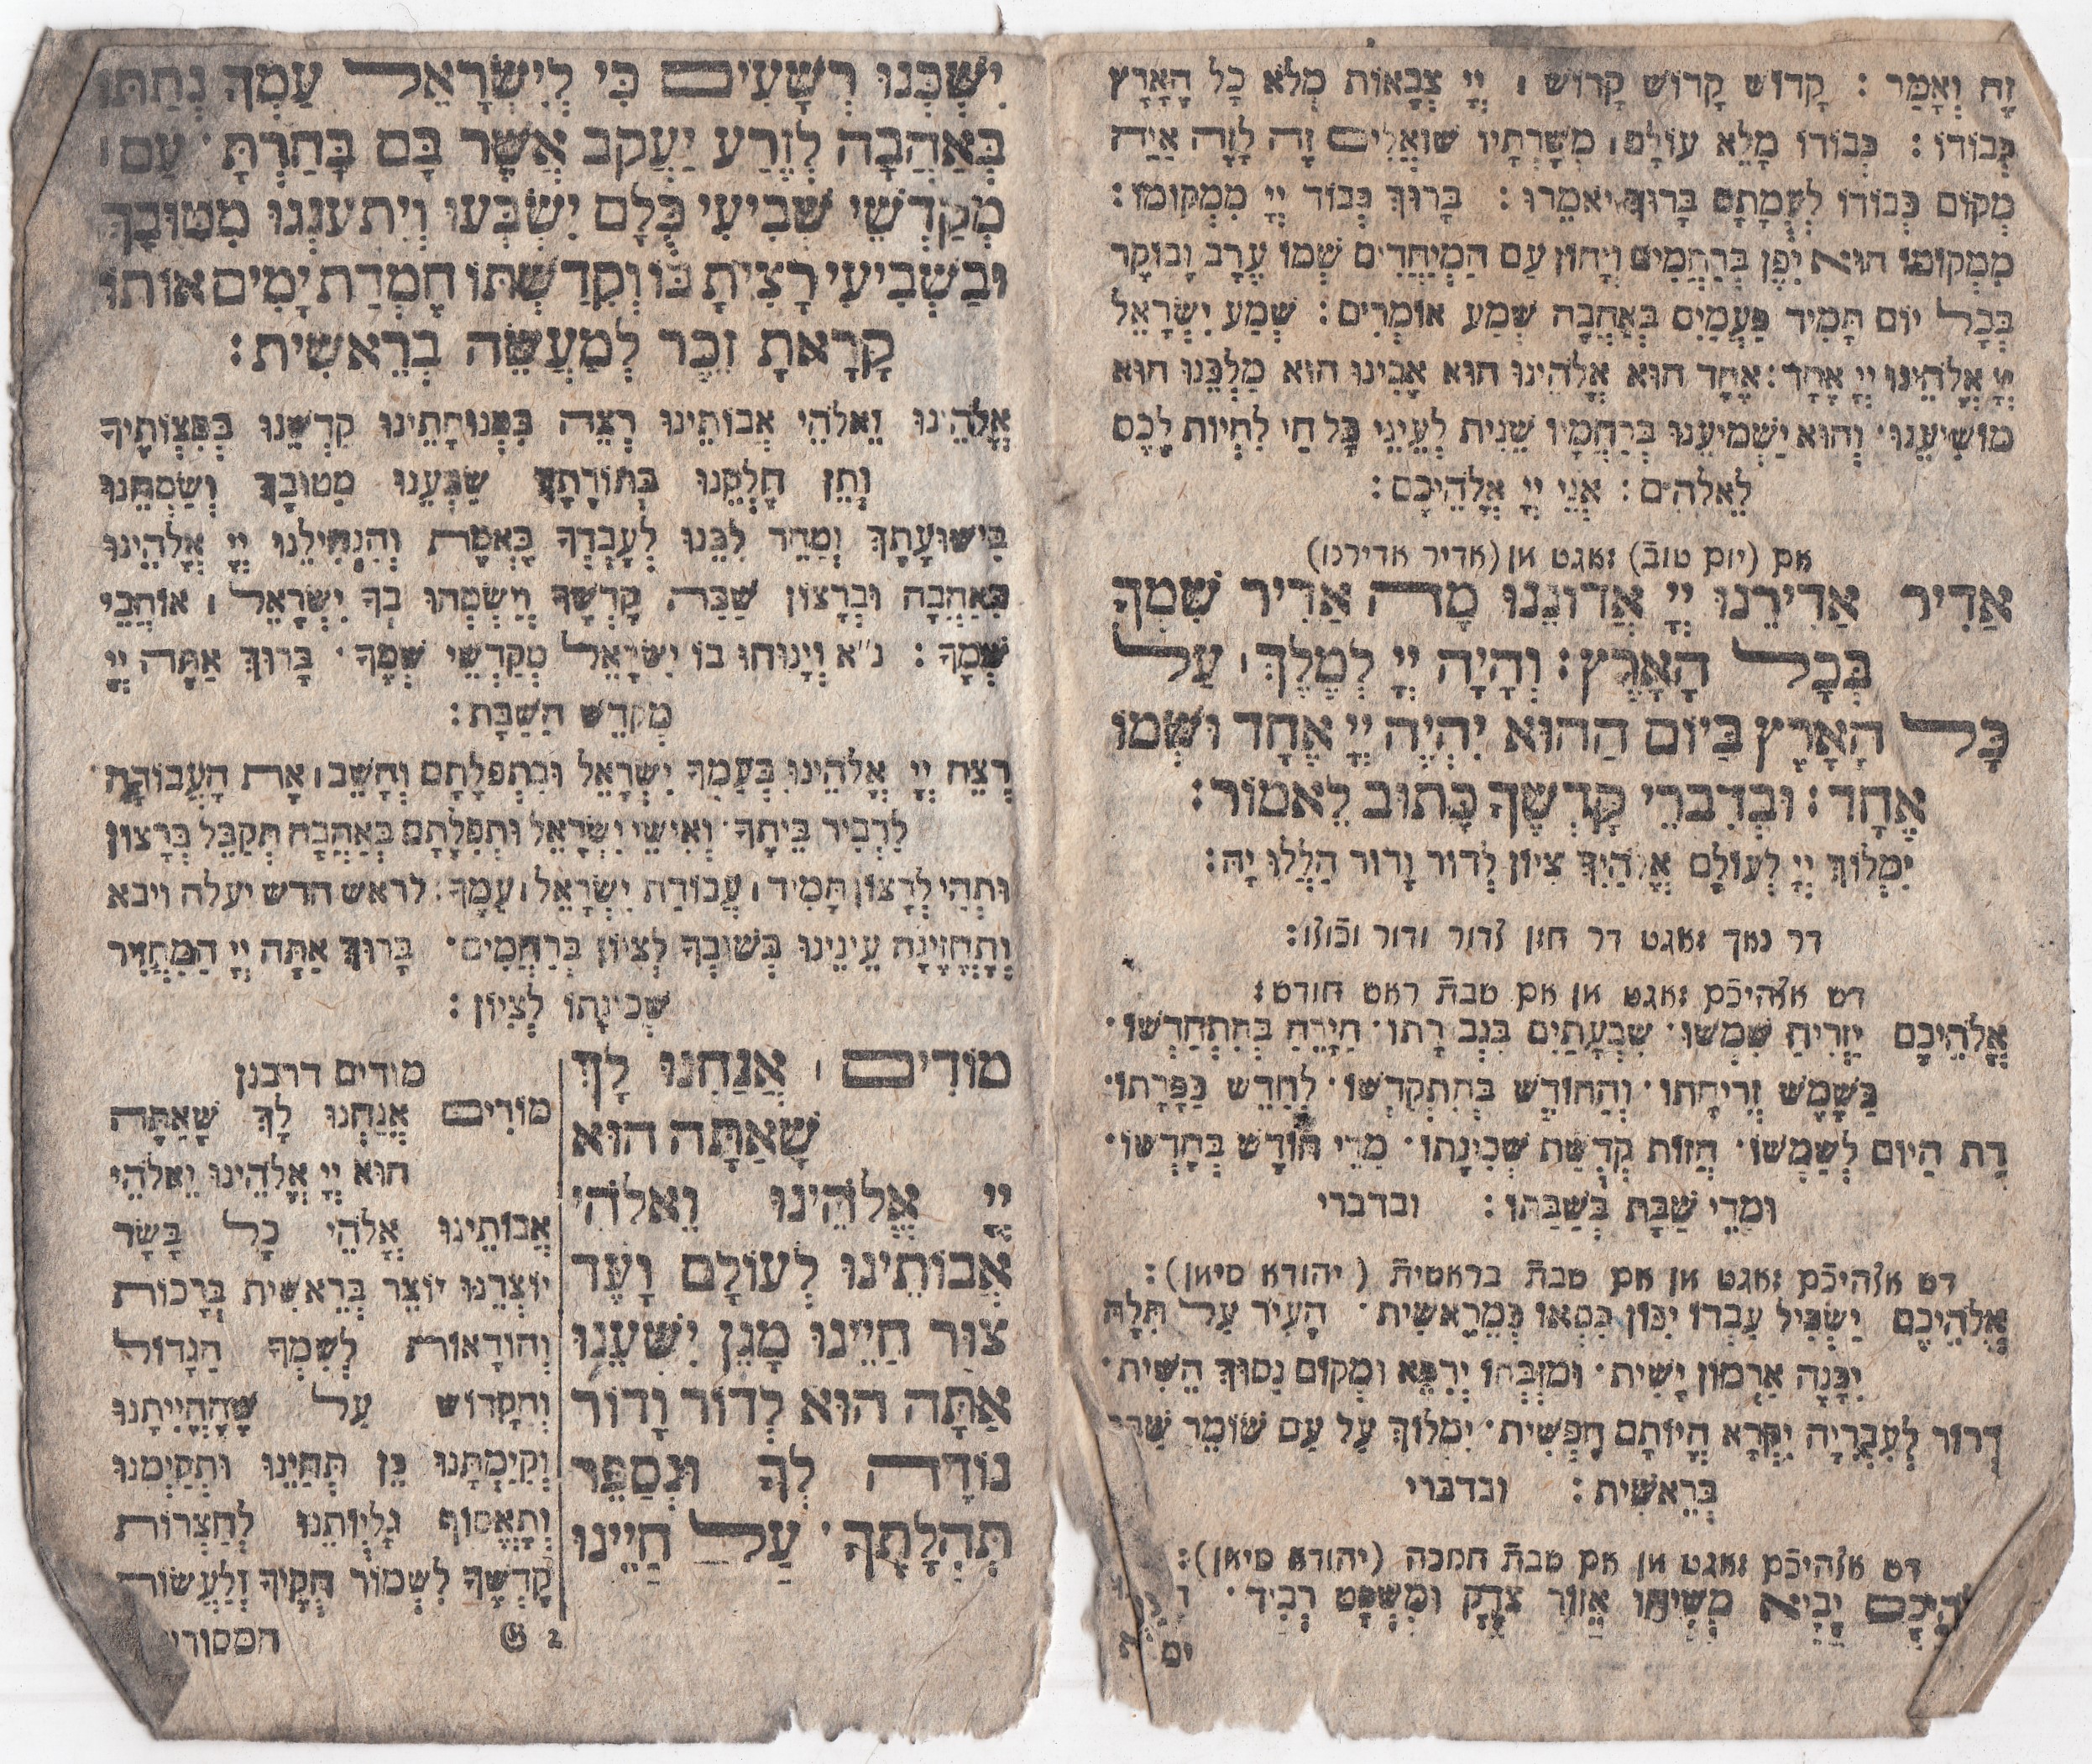 זֶה וְאָמַר : קָדוֹשׁ קָדוֹשׁ קָדוֹשׁ יְיָ צְבָאוֹת מְלֹא כָל הָאָרֶץ
כְּבוֹדוֹ : כְּבוֹדוֹ מָלֵא עוֹלָם מְשָׁרְתָיו שׁוֹאֲלִים זֶה לָזֶה אַיֵּה
מְקוֹם כְּבוֹדוֹ לְעֻמָּתָם בָּרוּךְ יֹאמֵרוּ : בָּרוּךְ כְּבוֹד יְיָ מִמְּקוֹמוֹ :
מִמְּקוֹמוֹ הוּא יִפֶן בְּרַחֲמִים וְיָחוֹן עַם הַמְיַחֲדִים שְׁמוֹ עֶרֶב וָבוֹקֶר
בְּכָל יוֹם תָּמִיד פַּעֲמַיִם בְּאַהֲבָה שְׁמַע אוֹמְרִים : שְׁמַע יִשְׂרָאֵל
יְיָ אֱלֹהֵינוּ יְיָ אֶחָד : אֶחָד הוּא אֱלֹהֵינוּ הוּא אָבִינוּ הוּא מַלְכֵּנוּ הוּא
מוֹשִׁיעֵנוּ · וְהוּא יַשְׁמִיעֵנוּ בְּרַחֲמָיו שֵׁנִית לְעֵינֵי כָּל חַי לִהְיוֹת לָכֶם
לֵאלֹהִים : אֲנִי יְיָ אֱלֹהֵיכֶם :
אם (יום טוב) זאגט אן (אדיר אדירנו)
אַדִּיר אַדִּירֵנוּ יְיָ אֲדוֹנֵנוּ מָה אַדִּיר שִׁמְךָ
בְּכָל הָאָרֶץ : וְהָיָה יְיָ לְמֶלֶךְ עַל
כָּל הָאָרֶץ בַּיּוֹם הַהוּא יִהְיֶה יְיָ אֶחָד וּשְׁמוֹ
אֶחָד : וּבְדִבְרֵי קָדְשְׁךָ כָּתוּב לֵאמוֹר :
יִמְלוֹךְ יְיָ לְעוֹלָם אֱלֹהַיִךְ צִיּוֹן לְדוֹר וָדוֹר הַלְלוּיָהּ :
דר נאך זאגט דר חזן לדור ודור וכולו :
דש אלהיכם זאגט אן אם שבת ראש חודש :
אֱלֹהֵיכֶם יַזְרִיחַ שִׁמְשׁוֹ · שִׁבְעָתַיִם בִּגְבֻרָתוֹ · הַיָּרֵחַ בְּהִתְחַדְּשׁוֹ ·
כַּשֶּׁמֶשׁ זְרִיחָתוֹ · וְהַחוֹדֶשׁ בְּהִתְקַדְּשׁוֹ · לְחַדֵּשׁ כַּפָּרָתוֹ ·
דַּת הַיּוֹם לְשַׁמְּשׁוֹ · חֲזוֹת קְדֻשַּׁת שְׁכִינָתוֹ · מִדֵּי חוֹדֶשׁ בְּחָדְשׁוֹ ·
וּמִדֵּי שַׁבָּת בְּשַׁבַּתּוֹ : ובדברי
דש אלהיכם זאגט אן אם שבת בראשית (יהודא סיאן) :
אֱלֹהֵיכֶם יַשְׂכִּיל עַבְדּוֹ יִכּוֹן כִּסְאוֹ כְּמֵרֵאשִׁית · הָעִיר עַל תִּלָּהּ
יִבָּנֶה אַרְמוֹן יָשִׁית · וּמִזְבְּחוֹ יְרַפֵּא וּמְקוֹם נִסּוּךְ הַשִּׁית ·
דְרוֹר לְעִבְרִיָּה יִקְרָא הֱיוֹתָם חָפְשִׁית · יִמְלוֹךְ עַל עַם שׁוֹמֵר
בְּרֵאשִׁית : ובדברי
דש אלהיכם זאגט אן אם שבת חנכה (יהודא סיאן) :
יָבִיא מְשִׁיחוֹ אֵזוֹר צֶדֶק וּמִשְׁפָּט רְבִיד ·
יִשְׁכְּנוּ רְשָׁעִים כִּי לְיִשְׂרָאֵל עַמְּךָ נְתַתּוֹ
בְּאַהֲבָה לְזֶרַע יַעֲקֹב אֲשֶׁר בָּם בָּחַרְתָּ · עַם
מְקַדְּשֵׁי שְׁבִיעִי כֻּלָּם יִשְׂבְּעוּ וְיִתְעַנְּגוּ מִטּוּבֶךָ
וּבַשְּׁבִיעִי רָצִיתָ בּוֹ וְקִדַּשְׁתּוֹ חֶמְדַּת יָמִים אוֹתוֹ
קָרָאתָ זֵכֶר לְמַעֲשֵׂה בְרֵאשִׁית :
אֱלֹהֵינוּ וֵאלֹהֵי אֲבוֹתֵינוּ רְצֵה בִּמְנוּחָתֵינוּ קַדְּשֵׁנוּ בְּמִצְוֹתֶיךָ
וְתֵן חֶלְקֵנוּ בְּתוֹרָתֶךָ שַׂבְּעֵנוּ מִטּוּבֶךָ וְשַׂמְּחֵנוּ
בִּישׁוּעָתֶךָ וְטַהֵר לִבֵּנוּ לְעָבְדְּךָ בֶּאֱמֶת וְהַנְחִילֵנוּ יְיָ אֱלֹהֵינוּ
בְּאַהֲבָה וּבְרָצוֹן שַׁבַּת קָדְשֶׁךָ וְיִשְׂמְחוּ בְךָ יִשְׂרָאֵל אוֹהֲבֵי
שְׁמֶךָ : נ״א וְיָנוּחוּ בוֹ יִשְׂרָאֵל מְקַדְּשֵׁי שְׁמֶךָ · בָּרוּךְ אַתָּה יְיָ
מְקַדֵּשׁ הַשַּׁבָּת :
רְצֵה יְיָ אֱלֹהֵינוּ בְּעַמְּךָ יִשְׂרָאֵל וּבִתְפִלָּתָם וְהָשֵׁב אֶת הָעֲבוֹדָה
לִדְבִיר בֵּיתֶךָ · וְאִישֵׁי יִשְׂרָאֵל וּתְפִלָּתָם בְּאַהֲבָה תְקַבֵּל בְּרָצוֹן
וּתְהִי לְרָצוֹן תָּמִיד עֲבוֹדַת יִשְׂרָאֵל עַמֶּךָ : לראש חדש יעלה ויבא
וְתֶחֱזֶינָה עֵינֵינוּ בְּשׁוּבְךָ לְצִיּוֹן בְּרַחֲמִים · בָּרוּךְ אַתָּה יְיָ הַמַּחֲזִיר
שְׁכִינָתוֹ לְצִיּוֹן :
מוֹדִים אֲנַחְנוּ לָךְ
שָׁאַתָּה הוּא
יְיָ אֱלֹהֵינוּ וֵאלֹהֵי
אֲבוֹתֵינוּ לְעוֹלָם וָעֶד
צוּר חַיֵּינוּ מָגֵן יִשְׁעֵנוּ
אַתָּה הוּא לְדוֹר וָדוֹר
נוֹדֶה לְךָ וּנְסַפֵּר
תְּהִלָּתֶךָ · עַל חַיֵּינוּ
מודים דרבנן
מוֹדִים אֲנַחְנוּ לָךְ שָׁאַתָּה
הוּא יְיָ אֱלֹהֵינוּ וֵאלֹהֵי
אֲבוֹתֵינוּ אֱלֹהֵי כָל בָּשָׂר
יוֹצְרֵנוּ יוֹצֵר בְּרֵאשִׁית בְּרָכוֹת
וְהוֹדָאוֹת לְשִׁמְךָ הַגָּדוֹל
וְהַקָּדוֹשׁ עַל שֶׁהֶחֱיִיתָנוּ
וְקִיַּמְתָּנוּ כֵּן תְּחַיֵּנוּ וּתְקַיְּמֵנוּ
וְתֶאֱסוֹף גָּלֻיּוֹתֵנוּ לְחַצְרוֹת
קָדְשֶׁךָ לִשְׁמוֹר חֻקֶּיךָ וְלַעֲשׂוֹת
2